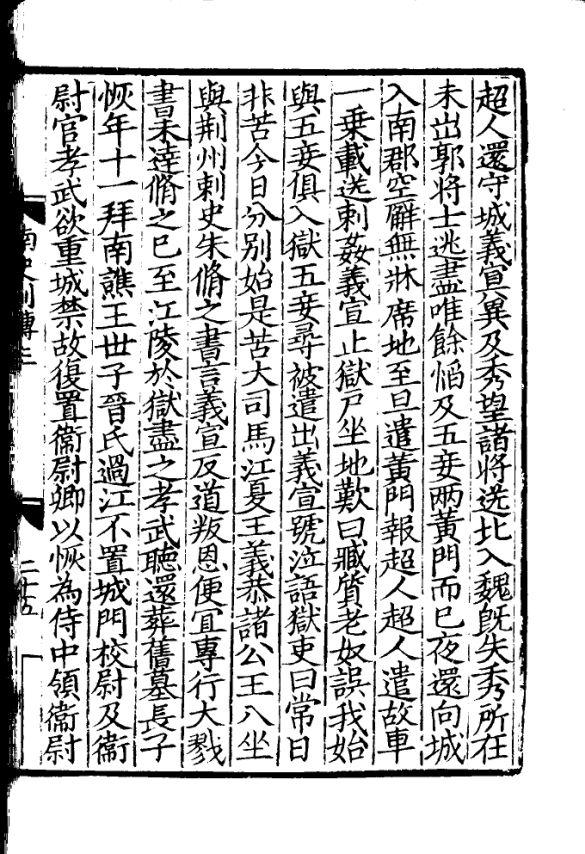 超人還守城義宣冀及秀望諸將送北入魏旣失秀所在
未出郭將士逃盡唯餘慆及五妾兩黃門而已夜還向城
入南郡空廨無牀席地至旦遣黃門報超人超人遣故車
一乗載送刺姦義宣止獄戸坐地歎曰臧質老奴誤我始
與五妾俱入獄五妾尋被遣出義宣號泣語獄吏曰常日
非苦今日分別始是苦大司馬江夏王義恭諸公王八坐
與荆州刺史朱脩之書言義宣反道叛恩便宜專行大戮
書未達脩之已至江陵於獄盡之孝武聽還葬舊墓長子
恢年十一拜南譙王世子晉氏過江不置城門校尉及衞
尉官孝武欲重城禁故復置衞尉卿以恢為侍中領衞尉
南史列傳三
二十五